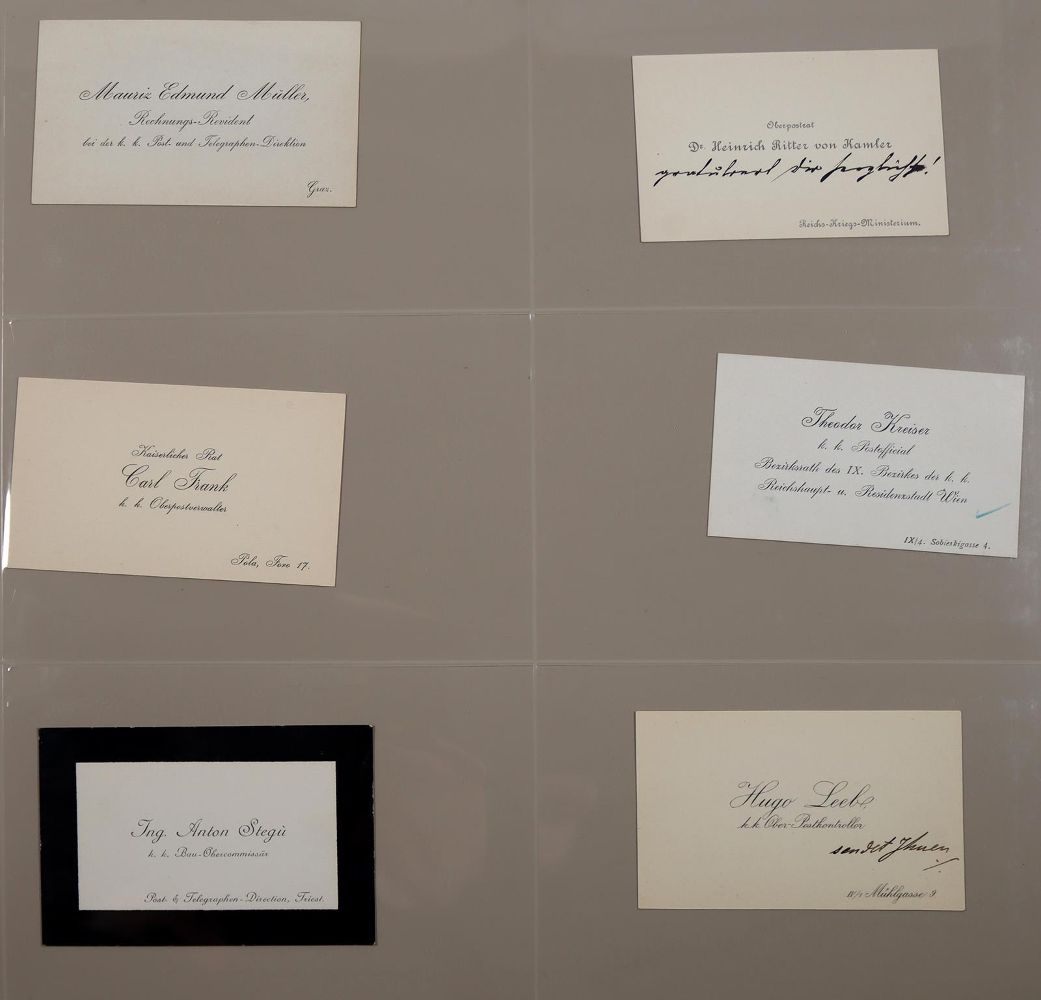 Mauriz Edmund Müller,
Rechnungs-Revident
bei der k. k. Post- und Telegraphen-Direktion
Graz.
Oberpostrat
Dr. Heinrich Ritter von Kamler
gratuliert Dir herzlichst!
Reichs-Kriegs-Ministerium.
Kaiserlicher Rat
Carl Frank
k. k. Oberpostverwalter
Pola, Foro 17.
Theodor Kreiser
k. k. Postofficial
Bezirksrath des IX. Bezirkes der k. k.
Reichshaupt- u. Residenzstadt Wien
IX/4. Sobieskigasse 4.
Ing. Anton Stegù
k. k. Bau-Obercommissär
Post- & Telegraphen-Direction, Triest.
Hugo Leeb,
k. k. Ober-Postkontrollor
sendet Ihnen
IV/1 Mühlgasse 9